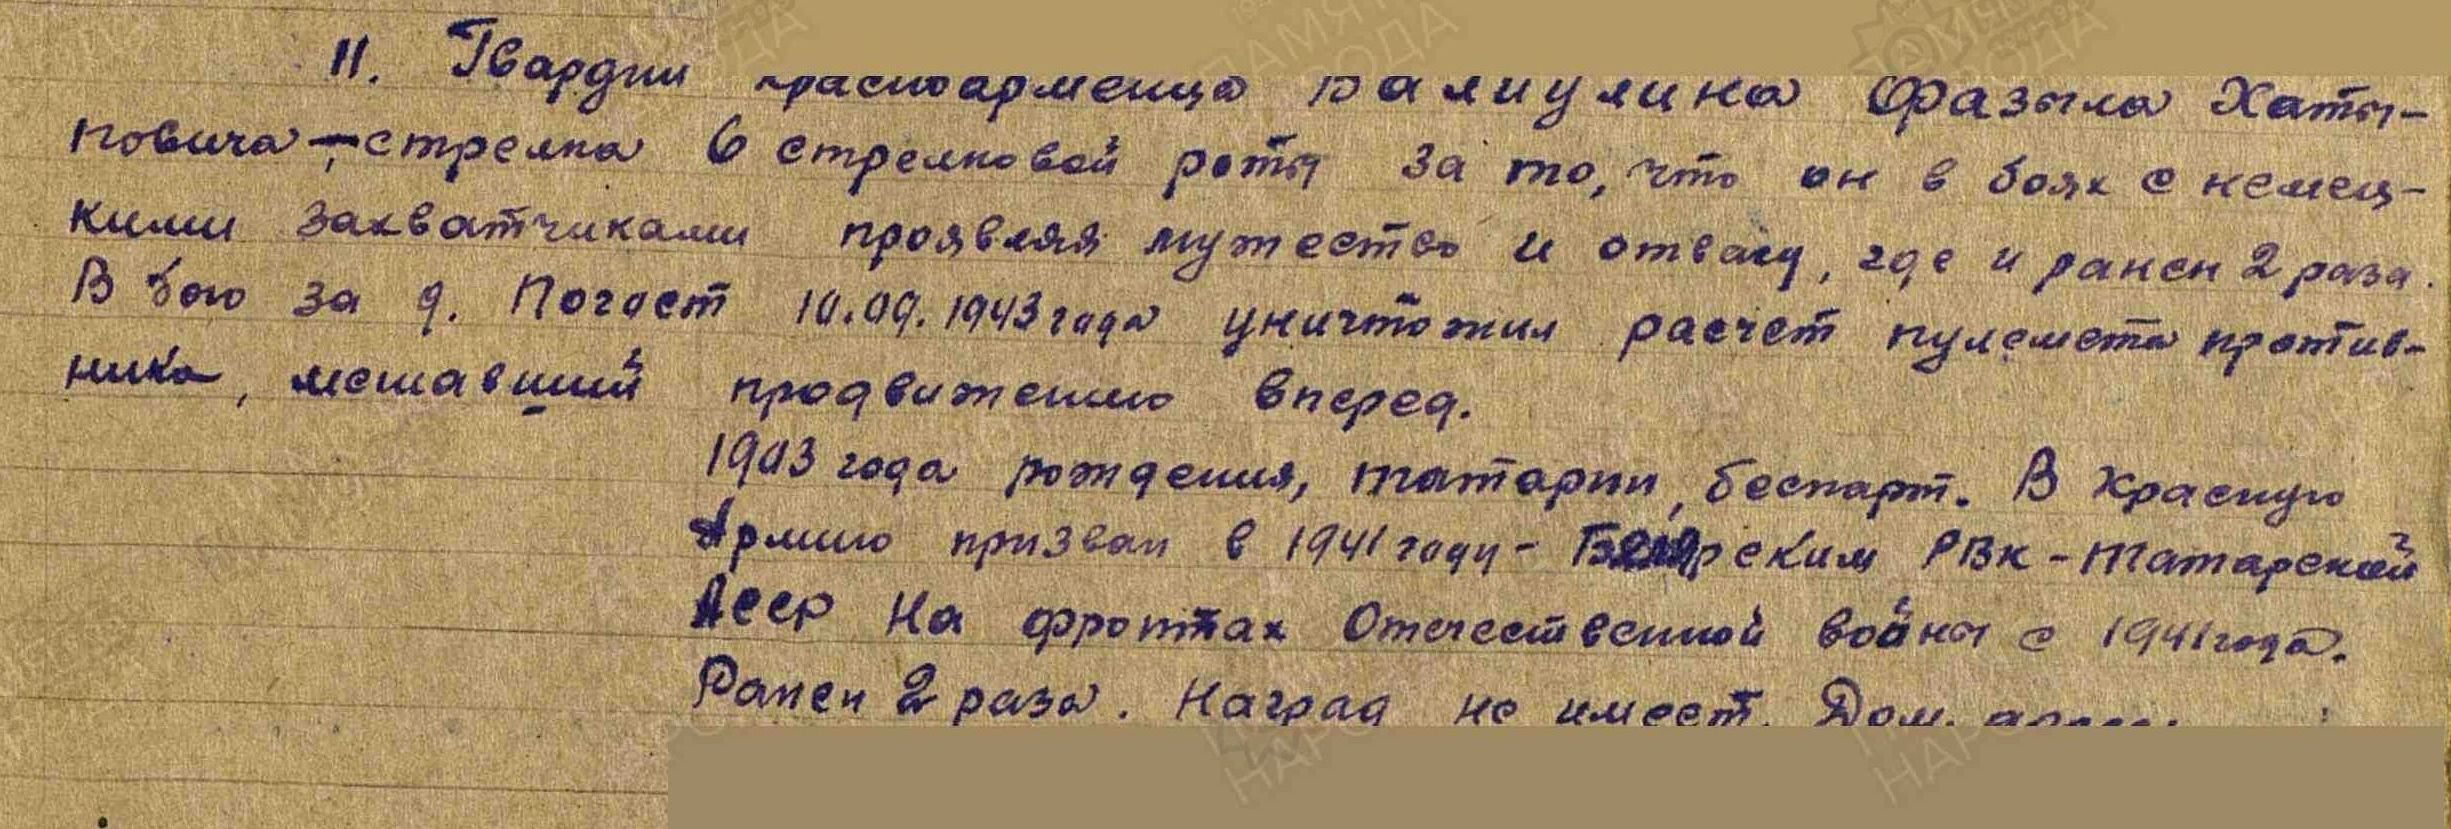 11. Гвардии красноармейца Валиулина Фазыла Хаты-
повича - стрелка 6 стрелковой роты за то, что он в боях с немец-
кими захватчиками проявляя мужество и отвагу, где и ранен 2 раза.
В бою за д. Погост 10.09.1943 года уничтожил расчет пулемета против-
ника, мешавший продвижению вперед.
1903 года рождения, татарин, беспарт. В Красную
Армию призван в 1941 году - РВК - Татарской
АССР На фронтах Отечественной войны с 1941 года.
Ранен 2 раза. Наград не имеет. Дом.